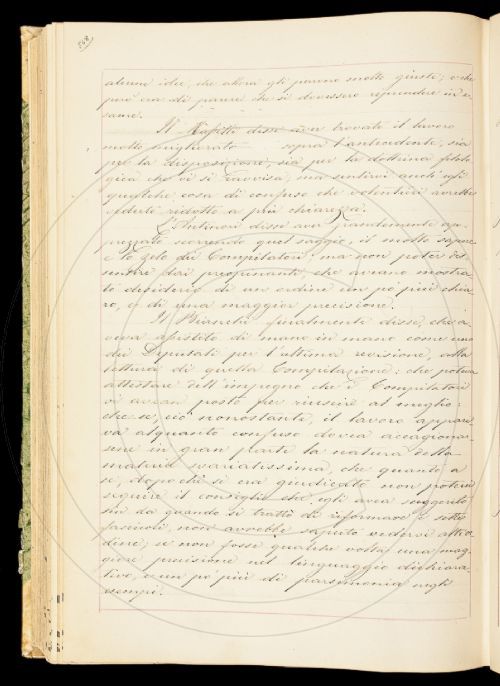 268.
alcune idee, che allora gli parvero molto giuste; e che
però era di parere che si dovessero riprendere in e-
same.
Il disse aver trovato il lavoro
molto migliorato sopra l'antecedente, sia
per la disposizione, sia per la dottrina filolo-
gica che vi si ravvisa, ma sentirvi anch'egli
qualche cosa di confuso che volentieri avrebbe
veduto ridotto a più chiarezza.
L'Antinori disse aver grandemente ap-
prezzato scorrendo quel saggio, il molto sapere
e lo zelo dei Compilatori; ma non poter dis-
sentire dai preopinanti, che aveano mostra-
to desiderio di un ordine un po' più chia-
ro, e di una maggior precisione.
Il Bianchi finalmente disse, che a-
veva assistito di mano in mano come uno
dei Deputati per l'ultima revisione, alla
lettura di quella Compilazione: che poteva
attestare dell'impegno che i Compilatori
vi avean posto per riuscire al meglio:
che se, ciò nonostante, il lavoro appari-
va alquanto confuso dovea accagionar-
sene in gran parte la natura della
materia svariatissima, che quanto a
sè, dopochè si era giudicato non potersi
seguire il consiglio che egli avea suggerito
fin da quando si trattò di riformare i sette
fascicoli, non avrebbe saputo vedervi altro
dire, se non fosse qualche volta una mag-
giore precisione nel linguaggio dichiara-
tivo, e un po' più di parsimonia negli
esempi.